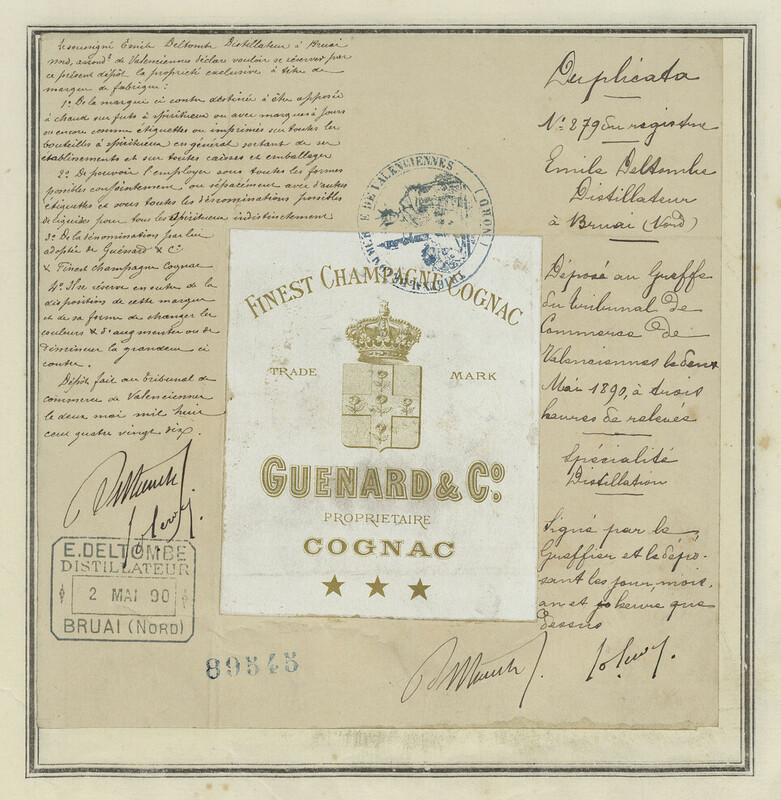 Le soussigné Emile Deltombe Distillateur à Bruai
Nord, arrondt de Valenciennes déclare vouloir se réserver par
ce présent dépôt la propriété exclusive à titre de
marque de fabrique :
1o De la marque ci contre destinée à être apposée
à chaud sur futs à spiritueux ou avec marques à jours
ou encore comme étiquettes ou imprimés sur toutes les
bouteilles à spiritueux en général sortant de ses
établissements et sur toutes caisses et emballages
2o De pouvoir l'employer sous toutes les formes
possibles conjointement ou séparément avec d'autres
étiquettes et sous toutes les dénominations possibles
de liquides pour tous les spiritueux indistinctement
3o De la dénomination par lui
adoptée de Guénard & Co
& Finest champagne Cognac
4o Il se réserve en outre de la
disposition de cette marque
et de sa forme de changer les
couleurs & d'augmenter ou de
diminuer la grandeur ci
contre.
Dépôt fait au tribunal de
commerce de Valenciennes
le deux mai mil huit
cent quatre vingt dix.
E. DELTOMBE
DISTILLATEUR
2 MAI 90
BRUAI (NORD)
89545
TRIBUNAL DE COMMERCE DE VALENCIENNES (NORD)
FINEST CHAMPAGNE COGNAC
TRADE MARK
GUENARD & Co.
PROPRIETAIRE
COGNAC
Duplicata
No 879 du registre
Emile Deltombe
Distillateur
à Bruai (Nord)
Déposé au Greffe
du tribunal de
Commerce de
Valenciennes le deux
Mai 1890, à trois
heures de relevée
Spécialité
Distillation
Signé par le
Greffier et le dépo-
sant les jour, mois,
an et heure que
dessus